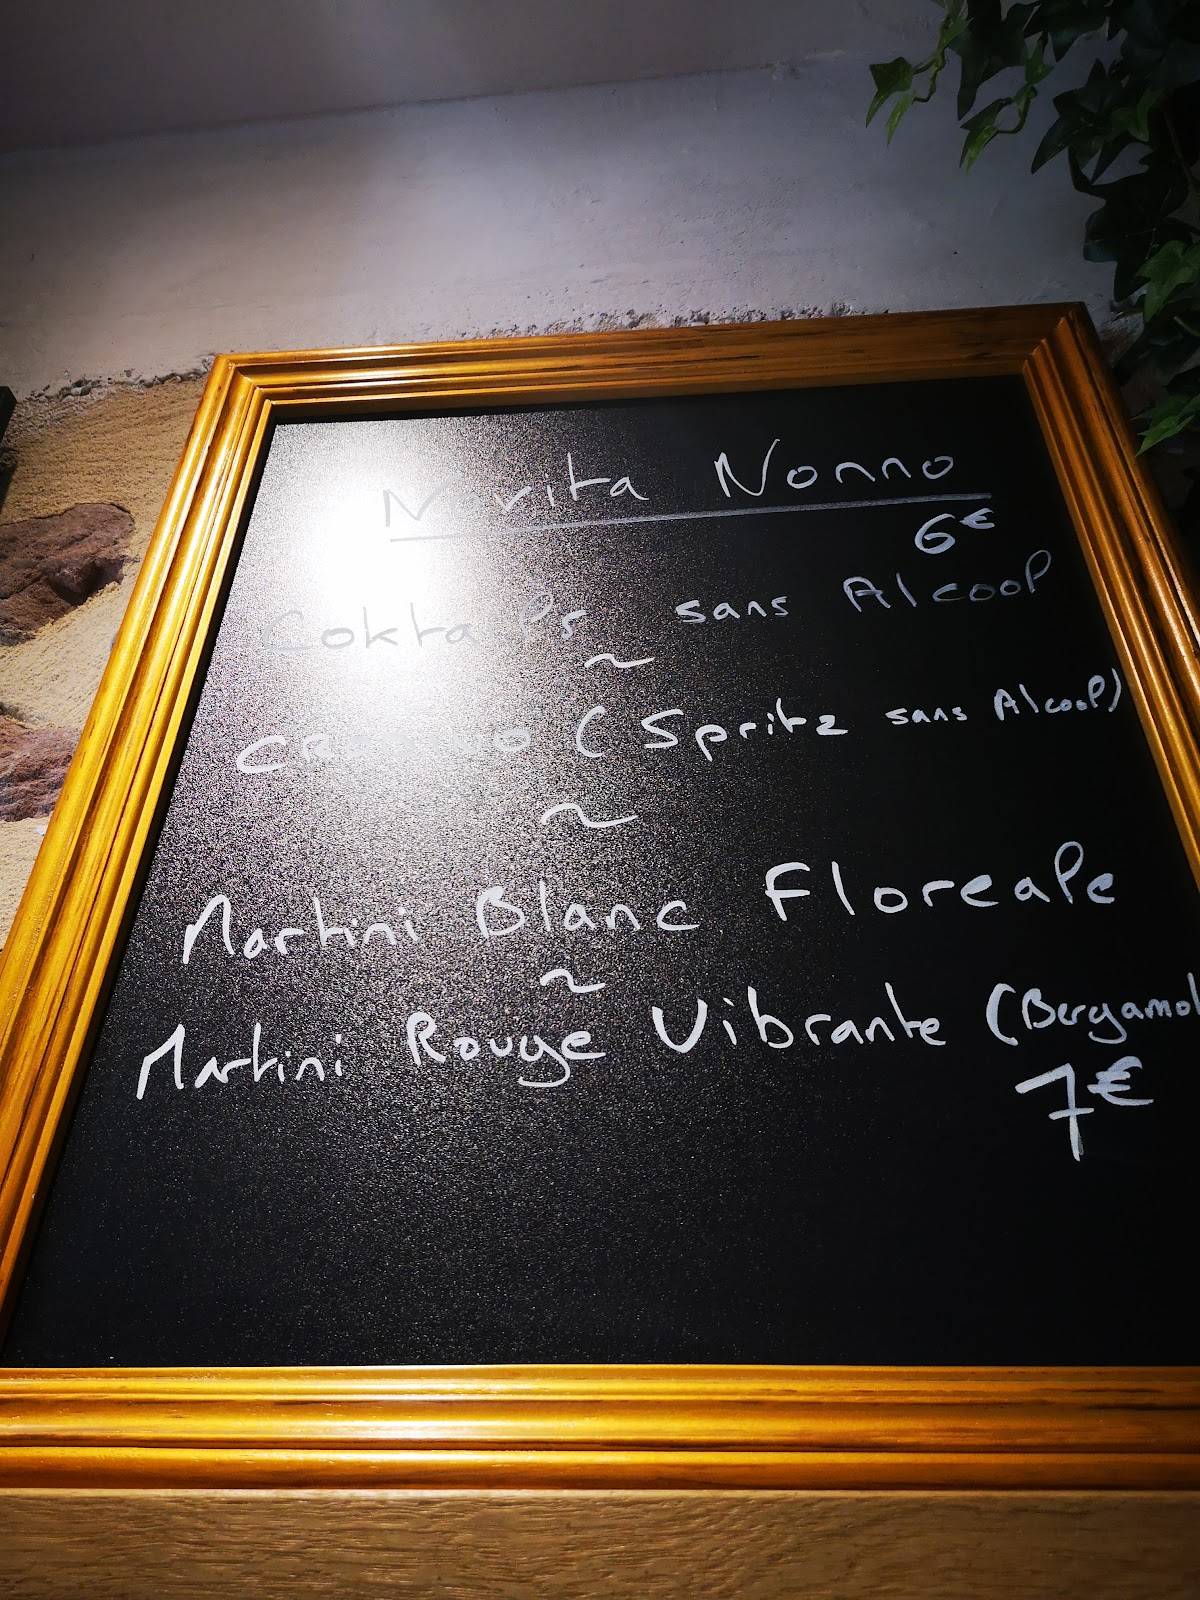 Novita Nonno
6€
Coktails sans Alcool
~
(Spritz sans Alcool)
~
Martini Blanc Floreale
~
Martini Rouge Vibrante (Bergamot
7€